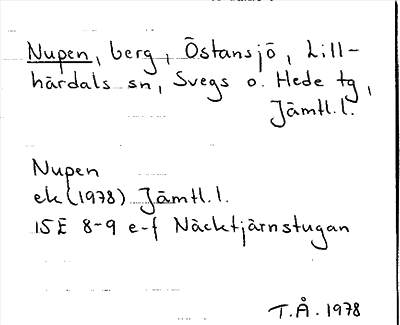 Nupen, berg, Östansjö, Lill-
härdals sn, Svegs o. Hede tg,
Jämtl.l.
Nupen
ek (1978) Jämtl.l.
15E 8-9 e-f Näcktjärnstugan
T.Å. 1978